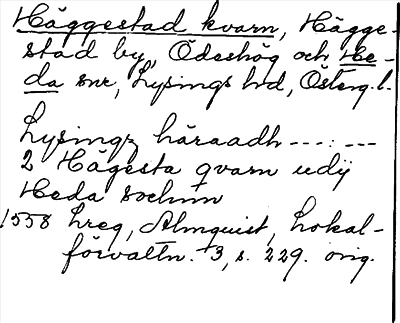 Häggestad kvarn, Hägge-
stad by, Ödeshög och He-
da snr, Lysings hd, Österg. l.
Lysingz häraadh ---:---
2 Hägesta qvarn udij
Heda sochnn
1558 Lreg, Almquist, Lokal-
förvaltn. 3, s. 229. orig.